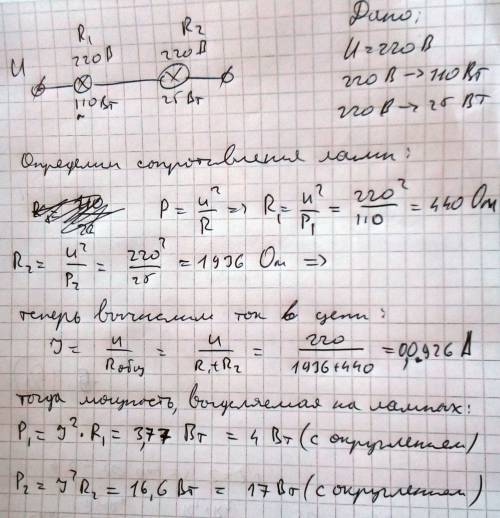 R₁ R₂ Дано:
U 220 В 220 В U = 220 В
110 Вт 25 Вт 220 В → 110 Вт
220 В → 25 Вт
Определим сопротивления ламп:
P = u²/R => R₁ = u²/P₁ = 220²/110 = 440 Ом
R₂ = u²/P₂ = 220²/25 = 1936 Ом =>
теперь вычислим ток в цепи:
J = u/Rобщ = u/R₁+R₂ = 220/1936+440 = 0,0926 А
тогда мощность, выделяемая на лампах:
P₁ = J²·R₁ = 3,77 Вт = 4 Вт (с округлением)
P₂ = J²R₂ = 16,6 Вт = 17 Вт (с округлением)